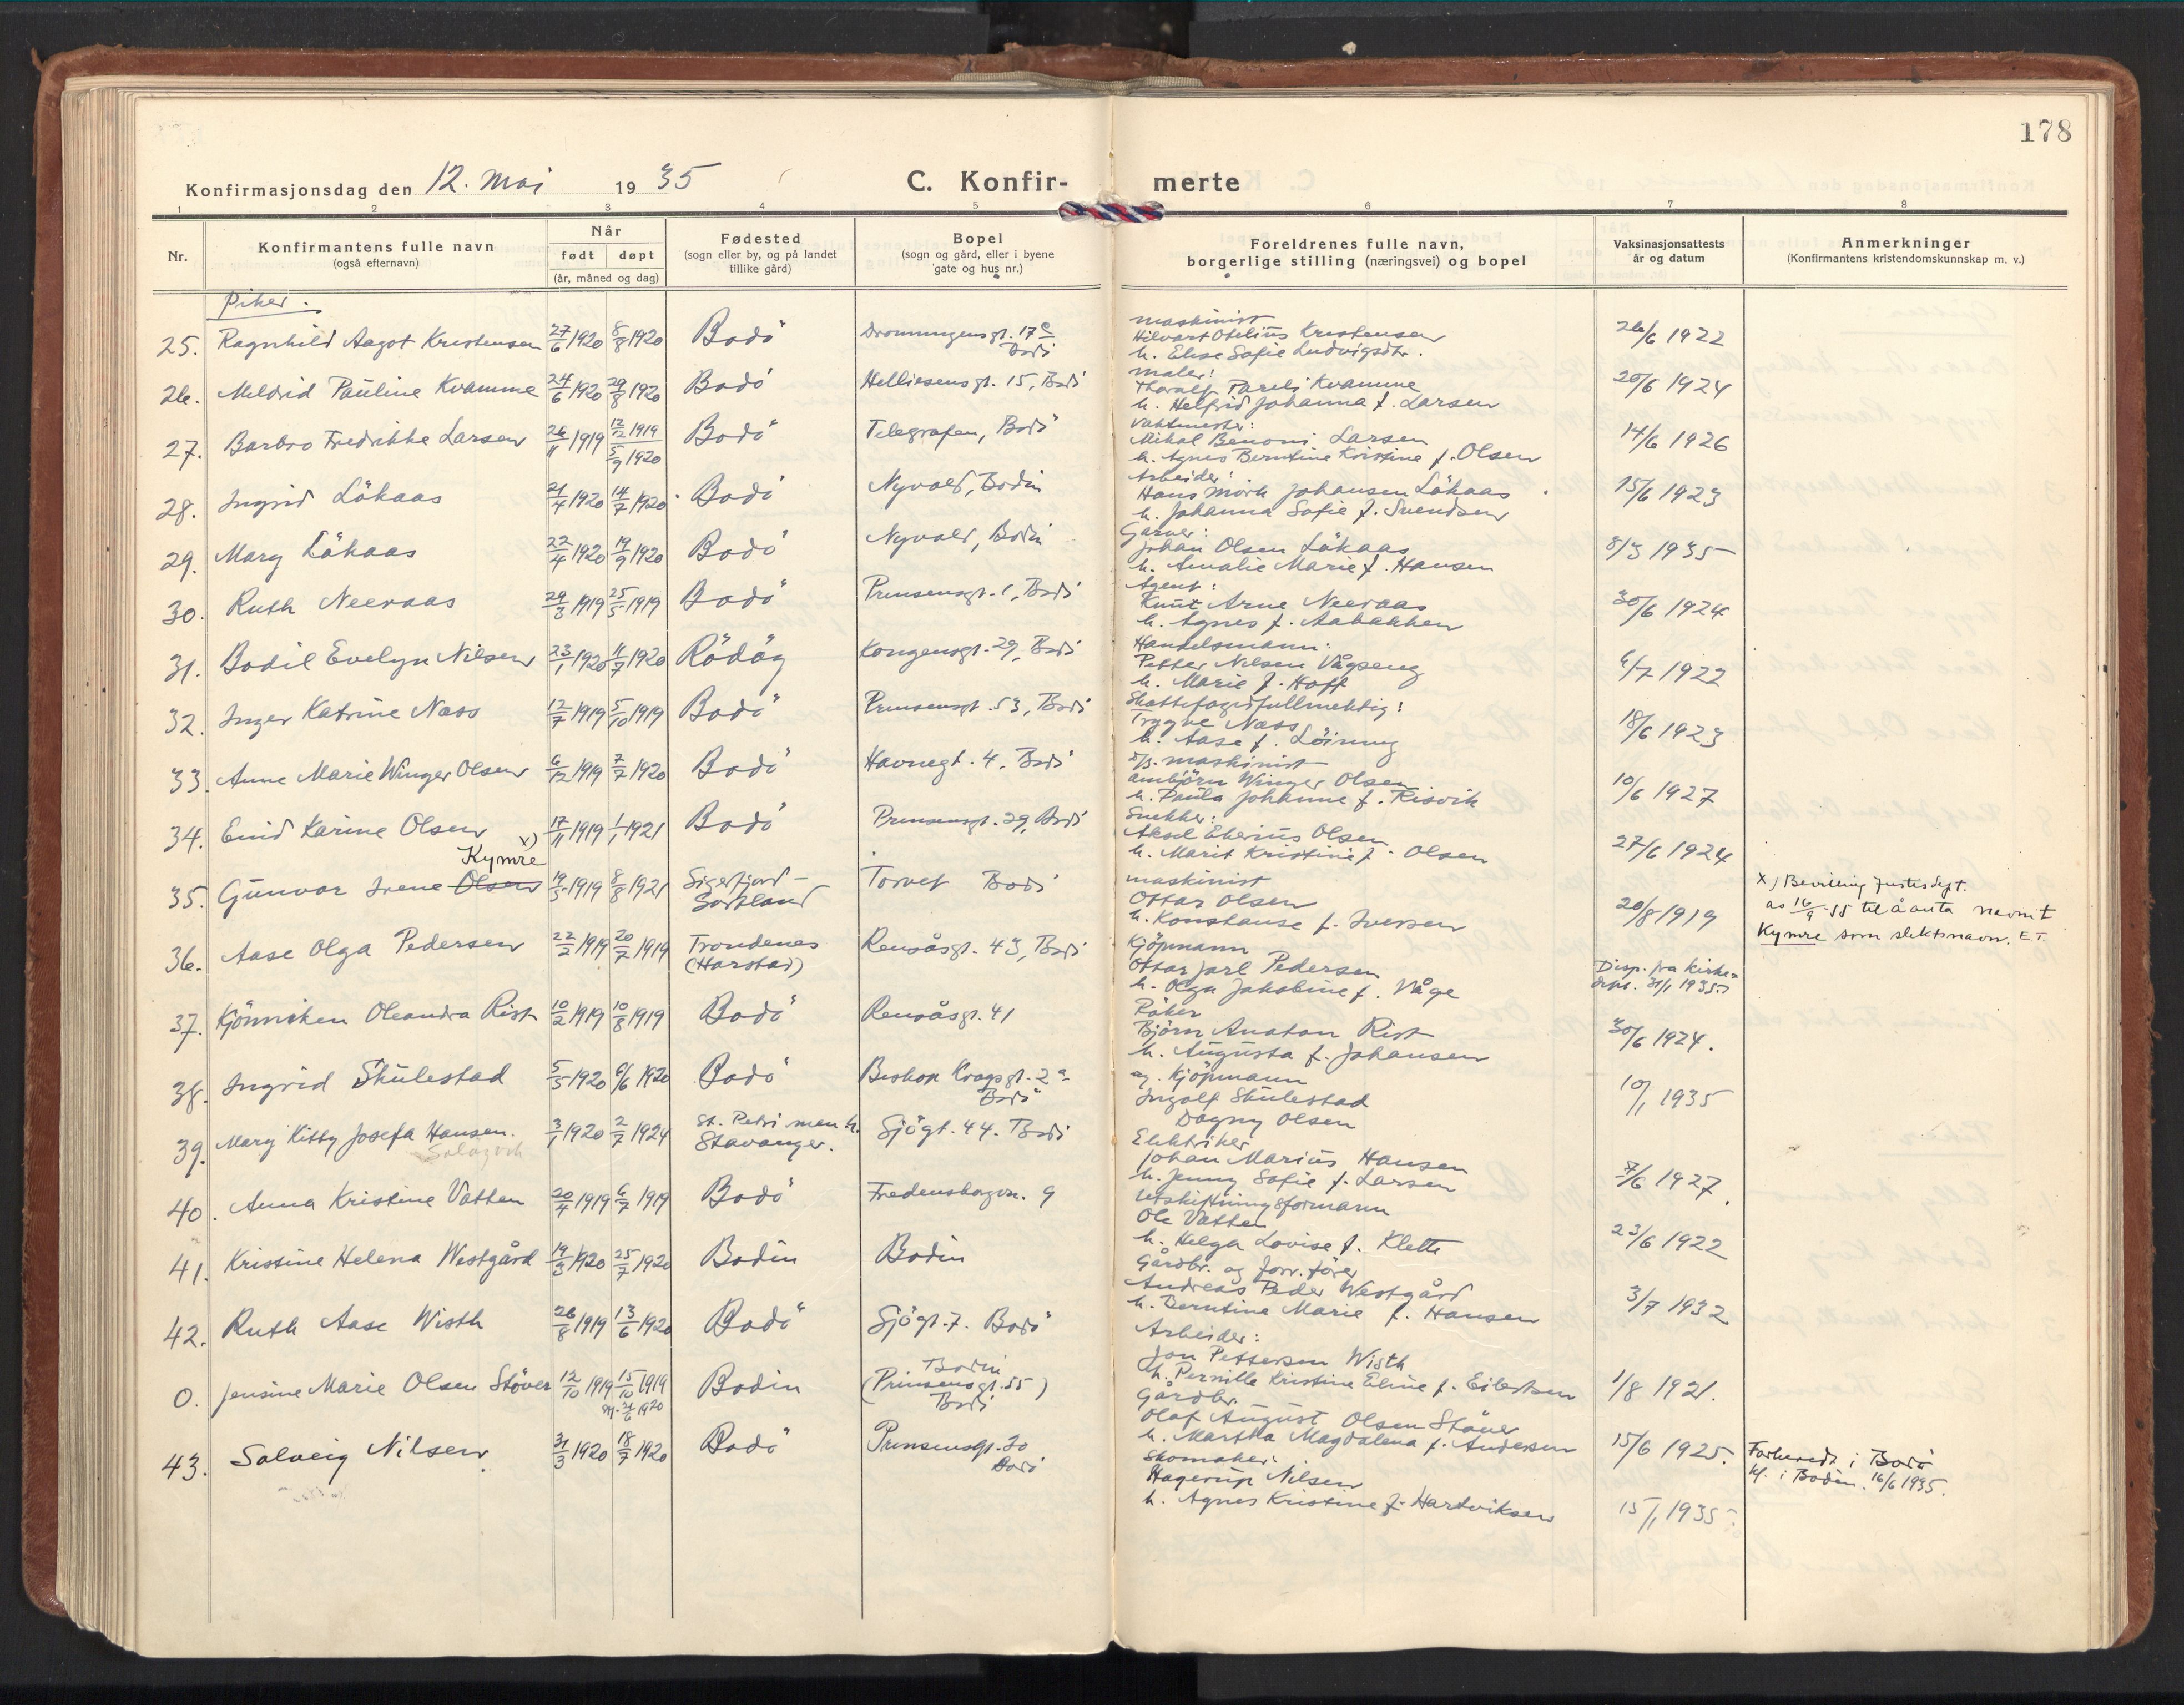 178
Konfirmasjonsdag den 12. mai 1935 C. Konfir- merte
1 2 3 4 5 6 7 8
Nr.
Konfirmantens fulle navn
(også efternavn)
Når
født døpt
(år, måned og dag)
Fødested
(sogn eller by, og på landet
tillike gård)
Bopel
(sogn og gård, eller i byene
gate og hus nr.)
Foreldrenes fulle navn,
borgerlige stilling (næringsvei) og bopel
Vaksinasjonsattests
år og datum
Anmerkninger
(Konfirmantens kristendomskunnskap m. v.)
Piker.
25. Ragnhild Aagot Kristensen 27/6 1920 8/8 1920 Bodö Dronningensgt. 17c Bodö
maskinist
Hilvart Otelius Kristensen
h. Elise Sofie Ludvigsdtr.
26/6 1922
26. Meldrid Pauline Kvamme 24/6 1920 29/8 1920 Bodö Helliesensgt. 15, Bodö
maler:
Thoralf Pareli Kvamme
h. Helfrid Johanna f. Larsen
20/6 1924
27. Barbro Fredrikke Larsen 26/11 1919 12/12 1919 5/9 1920 Bodö Telegrafen, Bodö
Vaktmester:
Mikal Benoni Larsen
h. Agnes Berntine Kristine f. Olsen
14/6 1926
28. Ingrid Lökaas 21/4 1920 14/7 1920 Bodö Nyvold, Bodin
Arbeider:
Hans Mörk Johansen Lökaas
h. Johanna Sofie f. Svendsen
15/6 1923
29. Mary Lökaas 22/4 1920 19/9 1920 Bodö Nyvold, Bodin
Garver:
Johan Olsen Lökaas
h. Amalie Marie f. Hansen
8/3 1935
30. Ruth Neeraas 29/3 1919 25/5 1919 Bodö Prinsensgt. 1, Bodö
Agent:
Knut Arne Neeraas
h. Agnes f. Aabakken
30/6 1924
31. Bodil Evelyn Nilsen 23/1 1920 11/7 1920 Rödöy Kongensgt. 29, Bodö
Handelsmann:
Petter Nilsen Vågseng
h. Marie f. Hoff
6/7 1922
32. Inger Katrine Næss 12/7 1919 5/10 1919 Bodö Prinsensgt. 53, Bodö
Skattefogedfullmektig:
Trygve Næss
h. Aase f. Löining
18/6 1923
33. Anne Marie Winger Olsen 6/12 1919 7/7 1920 Bodö Havnegt. 4. Bodö
D/s. maskinist
Ambjörn Winger Olsen
h. Paula Johanne f. Risvik
10/6 1927
34. Enid Karine Olsen 17/11 1919 1/1 1921 Bodö Prinsensgt. 29, Bodö
Snekker:
Aksel Eherius Olsen
h. Marit Kristine f. Olsen
27/6 1924
x)
Kymre
35. Gunvor Irene Olsen 19/5 1919 8/8 1921 Sigerfjord - Sortland Torvet Bodö
maskinist
Ottar Olsen
h. Konstanse f. Iversen
20/8 1919
x) Bevilling Justisdept.
av 16/9-55 til å anta navnet
Kymre som slektsnavn. E.T.
36. Aase Olga Pedersen 22/2 1919 20/7 1919 Trondenes (Harstad) Rensåsgt. 43, Bodö
Kjöpmann
Ottar Jarl Pedersen
h. Olga Jakobine f. Våge
Disp. fra Kirke-
dept. 31/1 1935.
37. Kjönniken Oleandra Rist 10/2 1919 10/8 1919 Bodö Rensåsgt. 41
Röker
Björn Anaton Rist
h. Augusta f. Johansen
30/6 1924.
38. Ingrid Skulestad 5/5 1920 6/6 1920 Bodö Biskop Kroghsgt. 2a Bodö
ag. Kjöpmann
Ingolf Skulestad
Dagny Olsen
10/1 1935
39. Mary Kitty Josefa Hansen. 3/1 1920 2/7 1924 St. Petri men h. Stavanger. Sjögt. 44. Bodö
Elektriker
Johan Marius Hansen
h. Jenny Sofie f. Larsen
7/6 1927.
40. Anna Kristine Vatten 20/4 1919 6/7 1919 Bodö Fredensborgvn. 9
Utskiftningsformann
Ole Vatten
h. Helga Lovise f. Klette
23/6 1922
41. Kristine Helena Westgård 19/3 1920 25/7 1920 Bodin Bodin
Gårdbr. og forr.förer
Andreas Peder Westgård
h. Berntine Marie f. Hansen
3/7 1932
42. Ruth Aase Wisth 26/8 1919 13/6 1920 Bodö Sjögt. 7. Bodö
Arbeider:
Jon Pettersen Wisth
h. Pernille Kristine Eline f. Eilertsen
1/8 1921.
0. Jensine Marie Olsen Stöver 12/10 1919 15/10 1919 21/6 1920 Bodin Bodin (Prinsensgt. 55) Bodö
Gårdbr.
Olaf August Olsen Stöver
h. Martha Magdalena f. Andersen
15/6 1925.
Forberedt i Bodö
kf. i Bodin. 16/6 1935.
43. Solveig Nilsen 31/3 1920 18/7 1920 Bodö Prinsensgt. 30 Bodö
Skomaker:
Hagerup Nilsen
h. Agnes Kristine f. Hartviksen
15/1 1935.